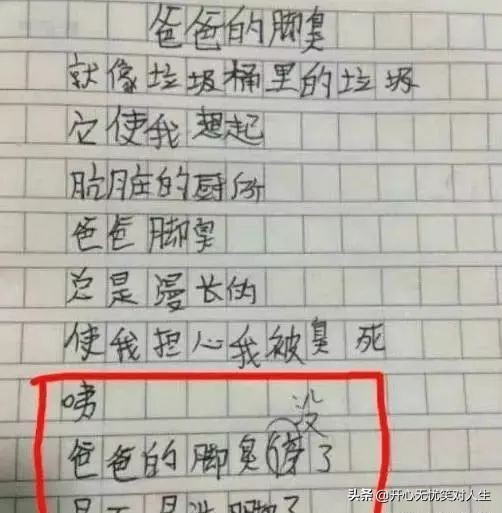 爸爸的脚臭
就像垃圾桶里的垃圾
它使我想起
肮脏的厨所
爸爸脚臭
总是漫长的
使我担心我被臭死
咦
没
爸爸的脚臭了
是不是洗脚了
头条 @开心无忧笑对人生